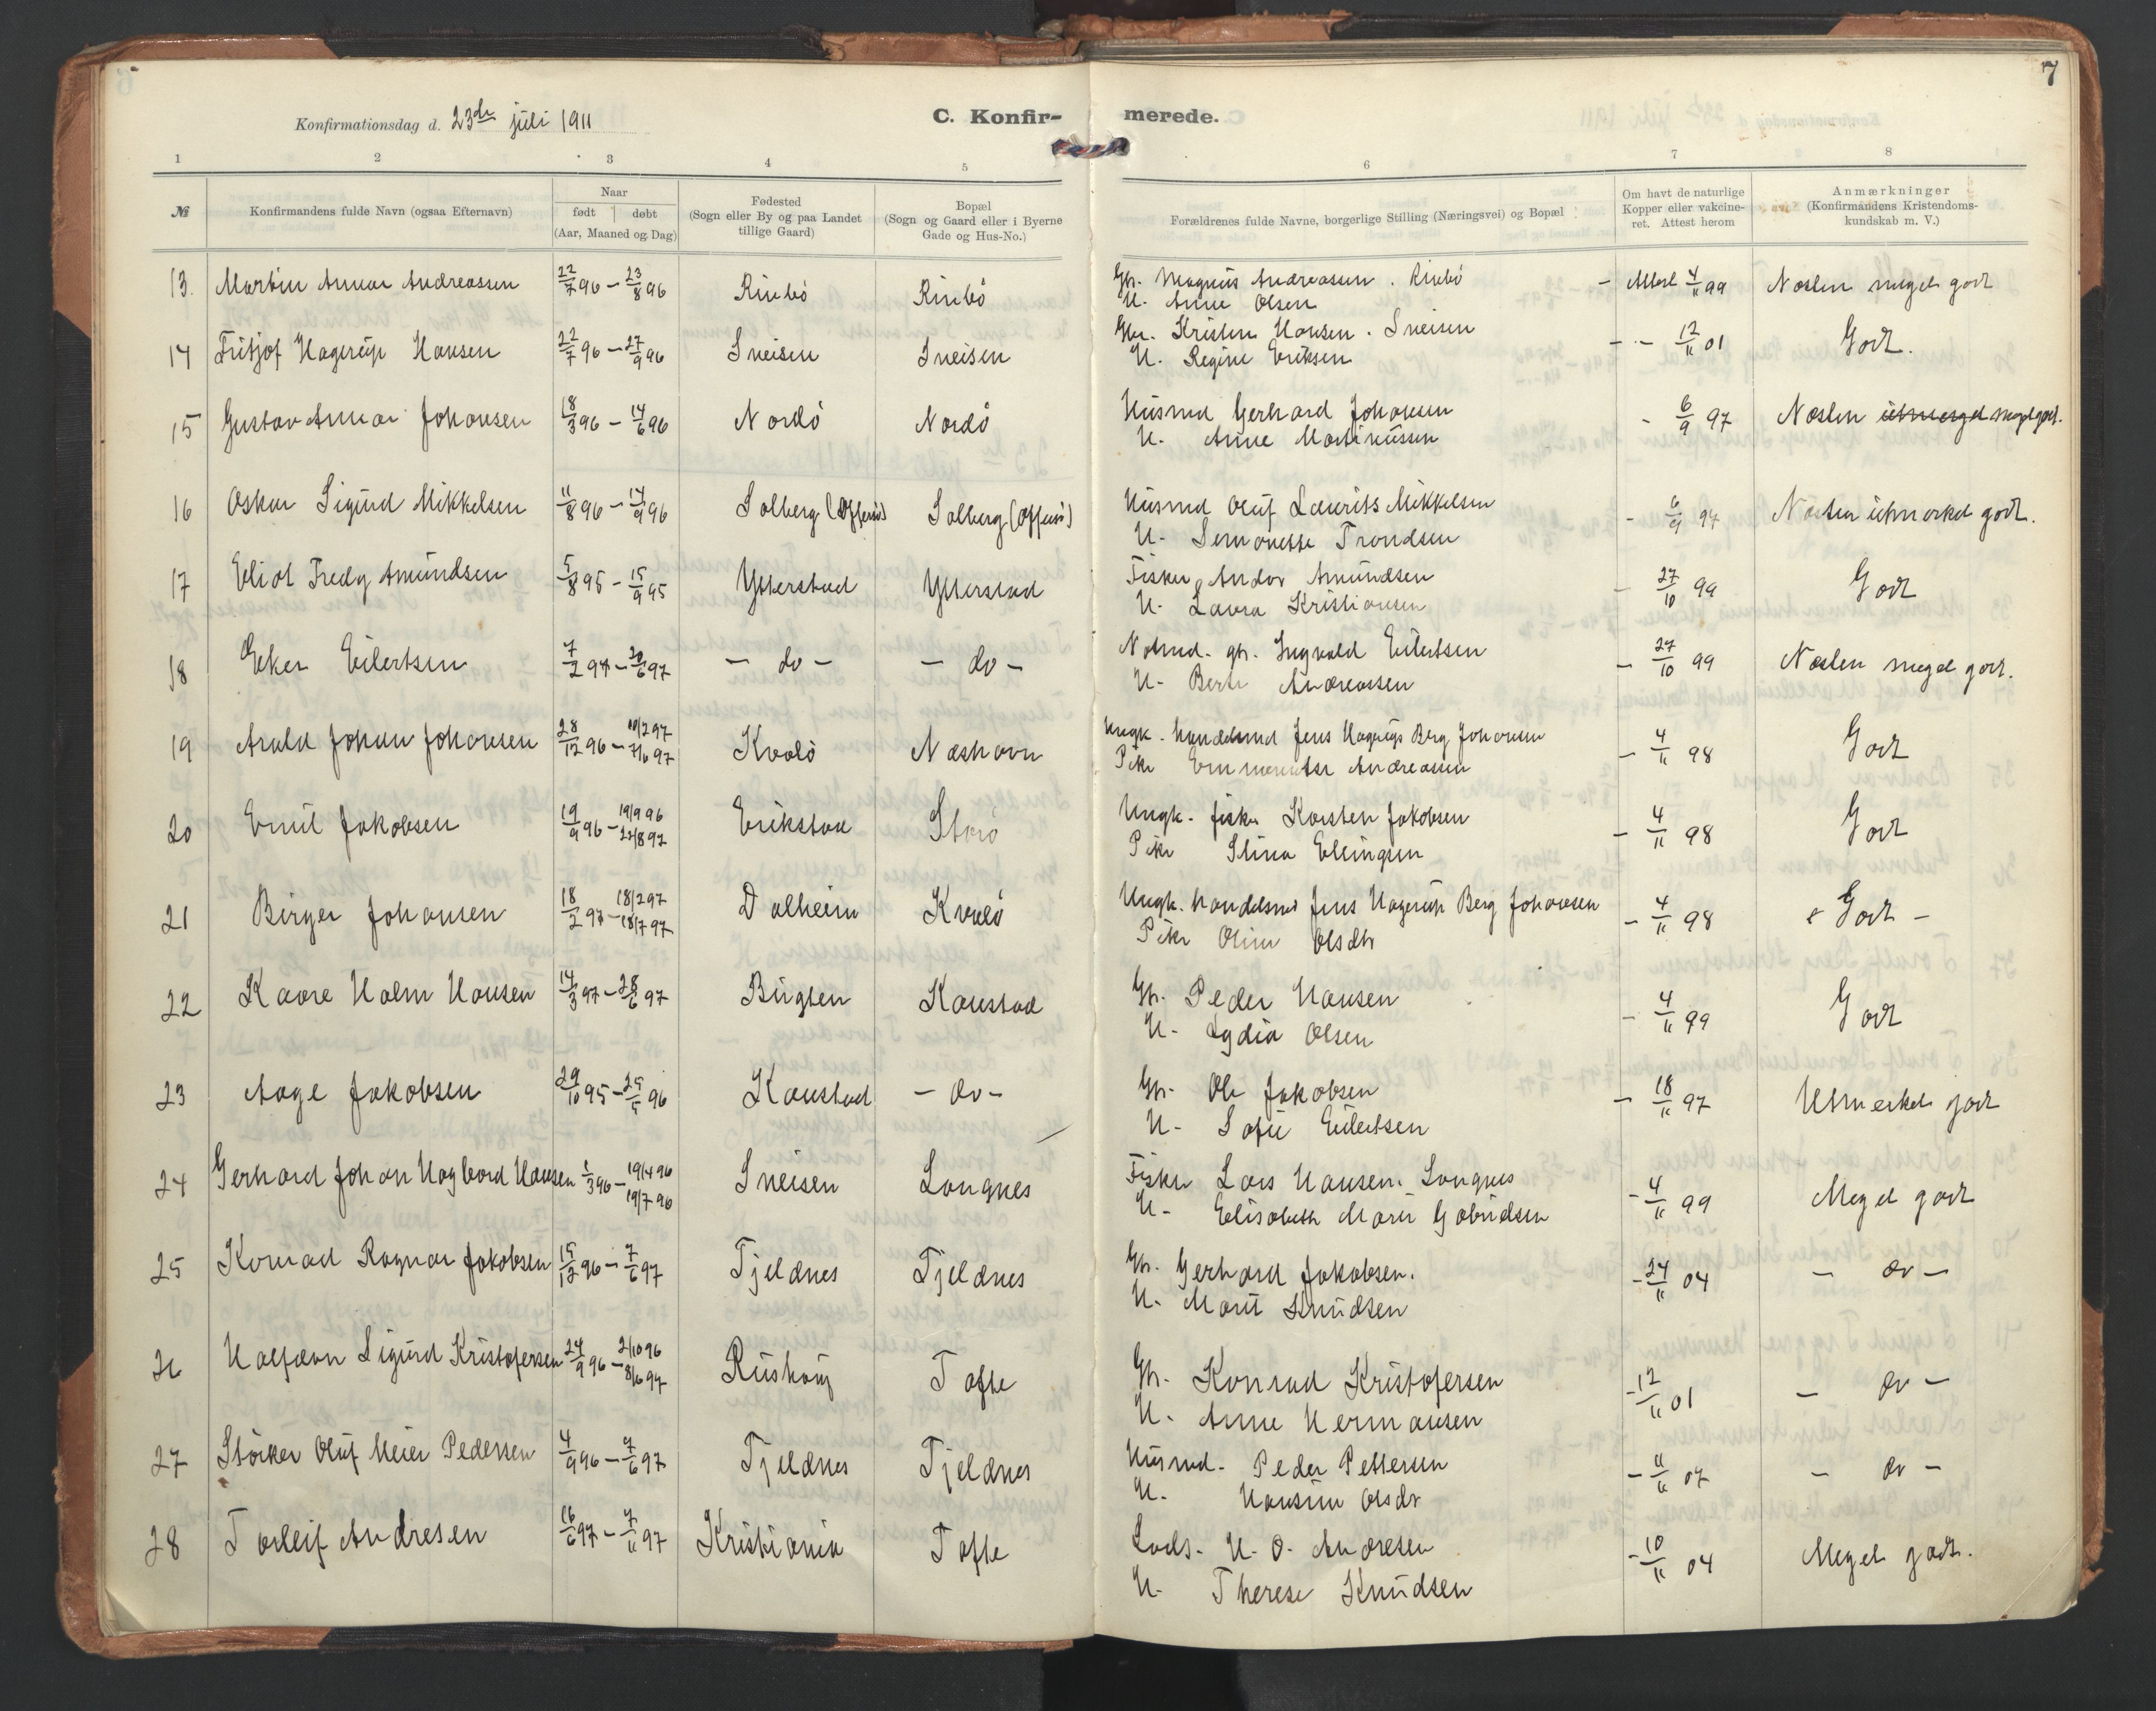 7
Konfirmationsdag d. 23de juli 1911
C. Konfir- merede.
1 2 3 4 5 6 7 8
№
Konfirmandens fulde Navn (ogsaa Efternavn)
Naar
født døbt
(Aar, Maaned og Dag)
Fødested
(Sogn eller By og paa Landet
tillige Gaard)
Bopæl
(Sogn og Gaard eller i Byerne
Gade og Hus-No.)
Forældrenes fulde Navne, borgerlige Stilling (Næringsvei) og Bopæl
Om havt de naturlige
Kopper eller vakcine-
ret. Attest herom
Anmærkninger
(Konfirmandens Kristendoms-
kundskab m. V.)
13. Martin Annar Andreassen 22/7 96 - 23/8 96 Rinbö Rinbö Gbr. Magnus Andreassen. Rinbö - Attest 4/11 99 Næsten meget godt
H. Anne Olsen
14 Fritjof Hagerup Hansen 22/7 96 - 27/9 96 Sneisen Sneisen Gbr. Kristen Hansen. Sneisen - - 12/11 01 Godt.
H. Regine Eriksen
15 Gustav Annar Johansen 18/3 96 - 14/6 96 Nordö Nordö Husmd Gerhard Johansen - 6/9 97 Næsten utmerket meget godt.
H. Anne Martinussen
16 Oskar Sigurd Mikkelsen 11/8 96 - 14/9 96 Solberg (Offersö) Solberg (Offersö) Husmd Oluf Laurits Mikkelsen - 6/9 97 Næsten utmerket godt.
H. Lernanette Trondsen
17 Eliot Fredy Amundsen 5/8 95 - 15/9 95 Ytterstad Ytterstad Fisker Andor Amundsen - 27/10 99 Godt
H. Laura Kristiansen
18 Eker Eilertsen 7/2 97 - 20/6 97 - do - - do - Notmd. gbr. Ingvald Eilertsen - 27/10 99 Næsten meget godt.
H. Berte Andreassen
19 Arild Johan Johansen 28/12 96 - 10/2 97 7/6 97 Kvalö Næshavn Ungk. handelsmd Jens Hagerup Berg Johansen - 4/11 98 Godt
Pike Emmerentse Andreassen
20 Emil Jakobsen 19/9 96 - 19/9 96 22/8 97 Erikstad Storö Ungk. fisker Karsten Jakobsen - 4/11 98 Godt
Pike Stina Ellingsen
21 Birger Johansen 18/2 97 - 18/2 97 18/7 97 Dalheim Kvalö Ungk. handelsmd Jens Hagerup Berg Johansen - 4/11 98 Godt -
Pike Oline Olsdtr
22 Kaare Holm Hansen 14/3 97 - 28/6 97 Bugten Kanstad Gbr. Peder Hansen - 4/11 99 Godt
H. Lydia Olsen
23 Aage Jakobsen 29/10 95 - 25/5 96 Kanstad - do - Gbr. Ole Jakobsen - 18/11 97 Utmerket godt
H. Sofie Eilertsen
24 Gerhard Johan Hagbard Hansen 1/3 96 - 19/4 96 19/7 96 Sneisen Langnes Fisker Lars Hansen. Langnes - 4/11 99 Meget godt
H. Elisabeth Marie Gabrielsen
25 Konrad Ragnar Jakobsen 15/12 96 - 7/6 97 Tjeldnes Tjeldnes Gbr. Gerhard Jakobsen. - 24/11 04 - do -
H. Marit Knudsen
26 Halfdan Sigurd Kristofersen 24/9 96 - 2/10 96 8/6 97 Rishaug Tofte Gbr. Konrad Kristofersen - 12/11 01 - do -
H. Anne Hermansen
27 Störker Oluf Meier Pedersen 4/9 96 - 7/6 97 Tjeldnes Tjeldnes Husmd. Peder Pettersen - 11/11 07 - do -
H. Hansine Olsdr
28 Torleif Andresen 16/6 97 - 7/11 97 Kristiania Tofte Lods. H. O. Andresen - 10/11 04 Meget godt.
H. Therese Knudsen